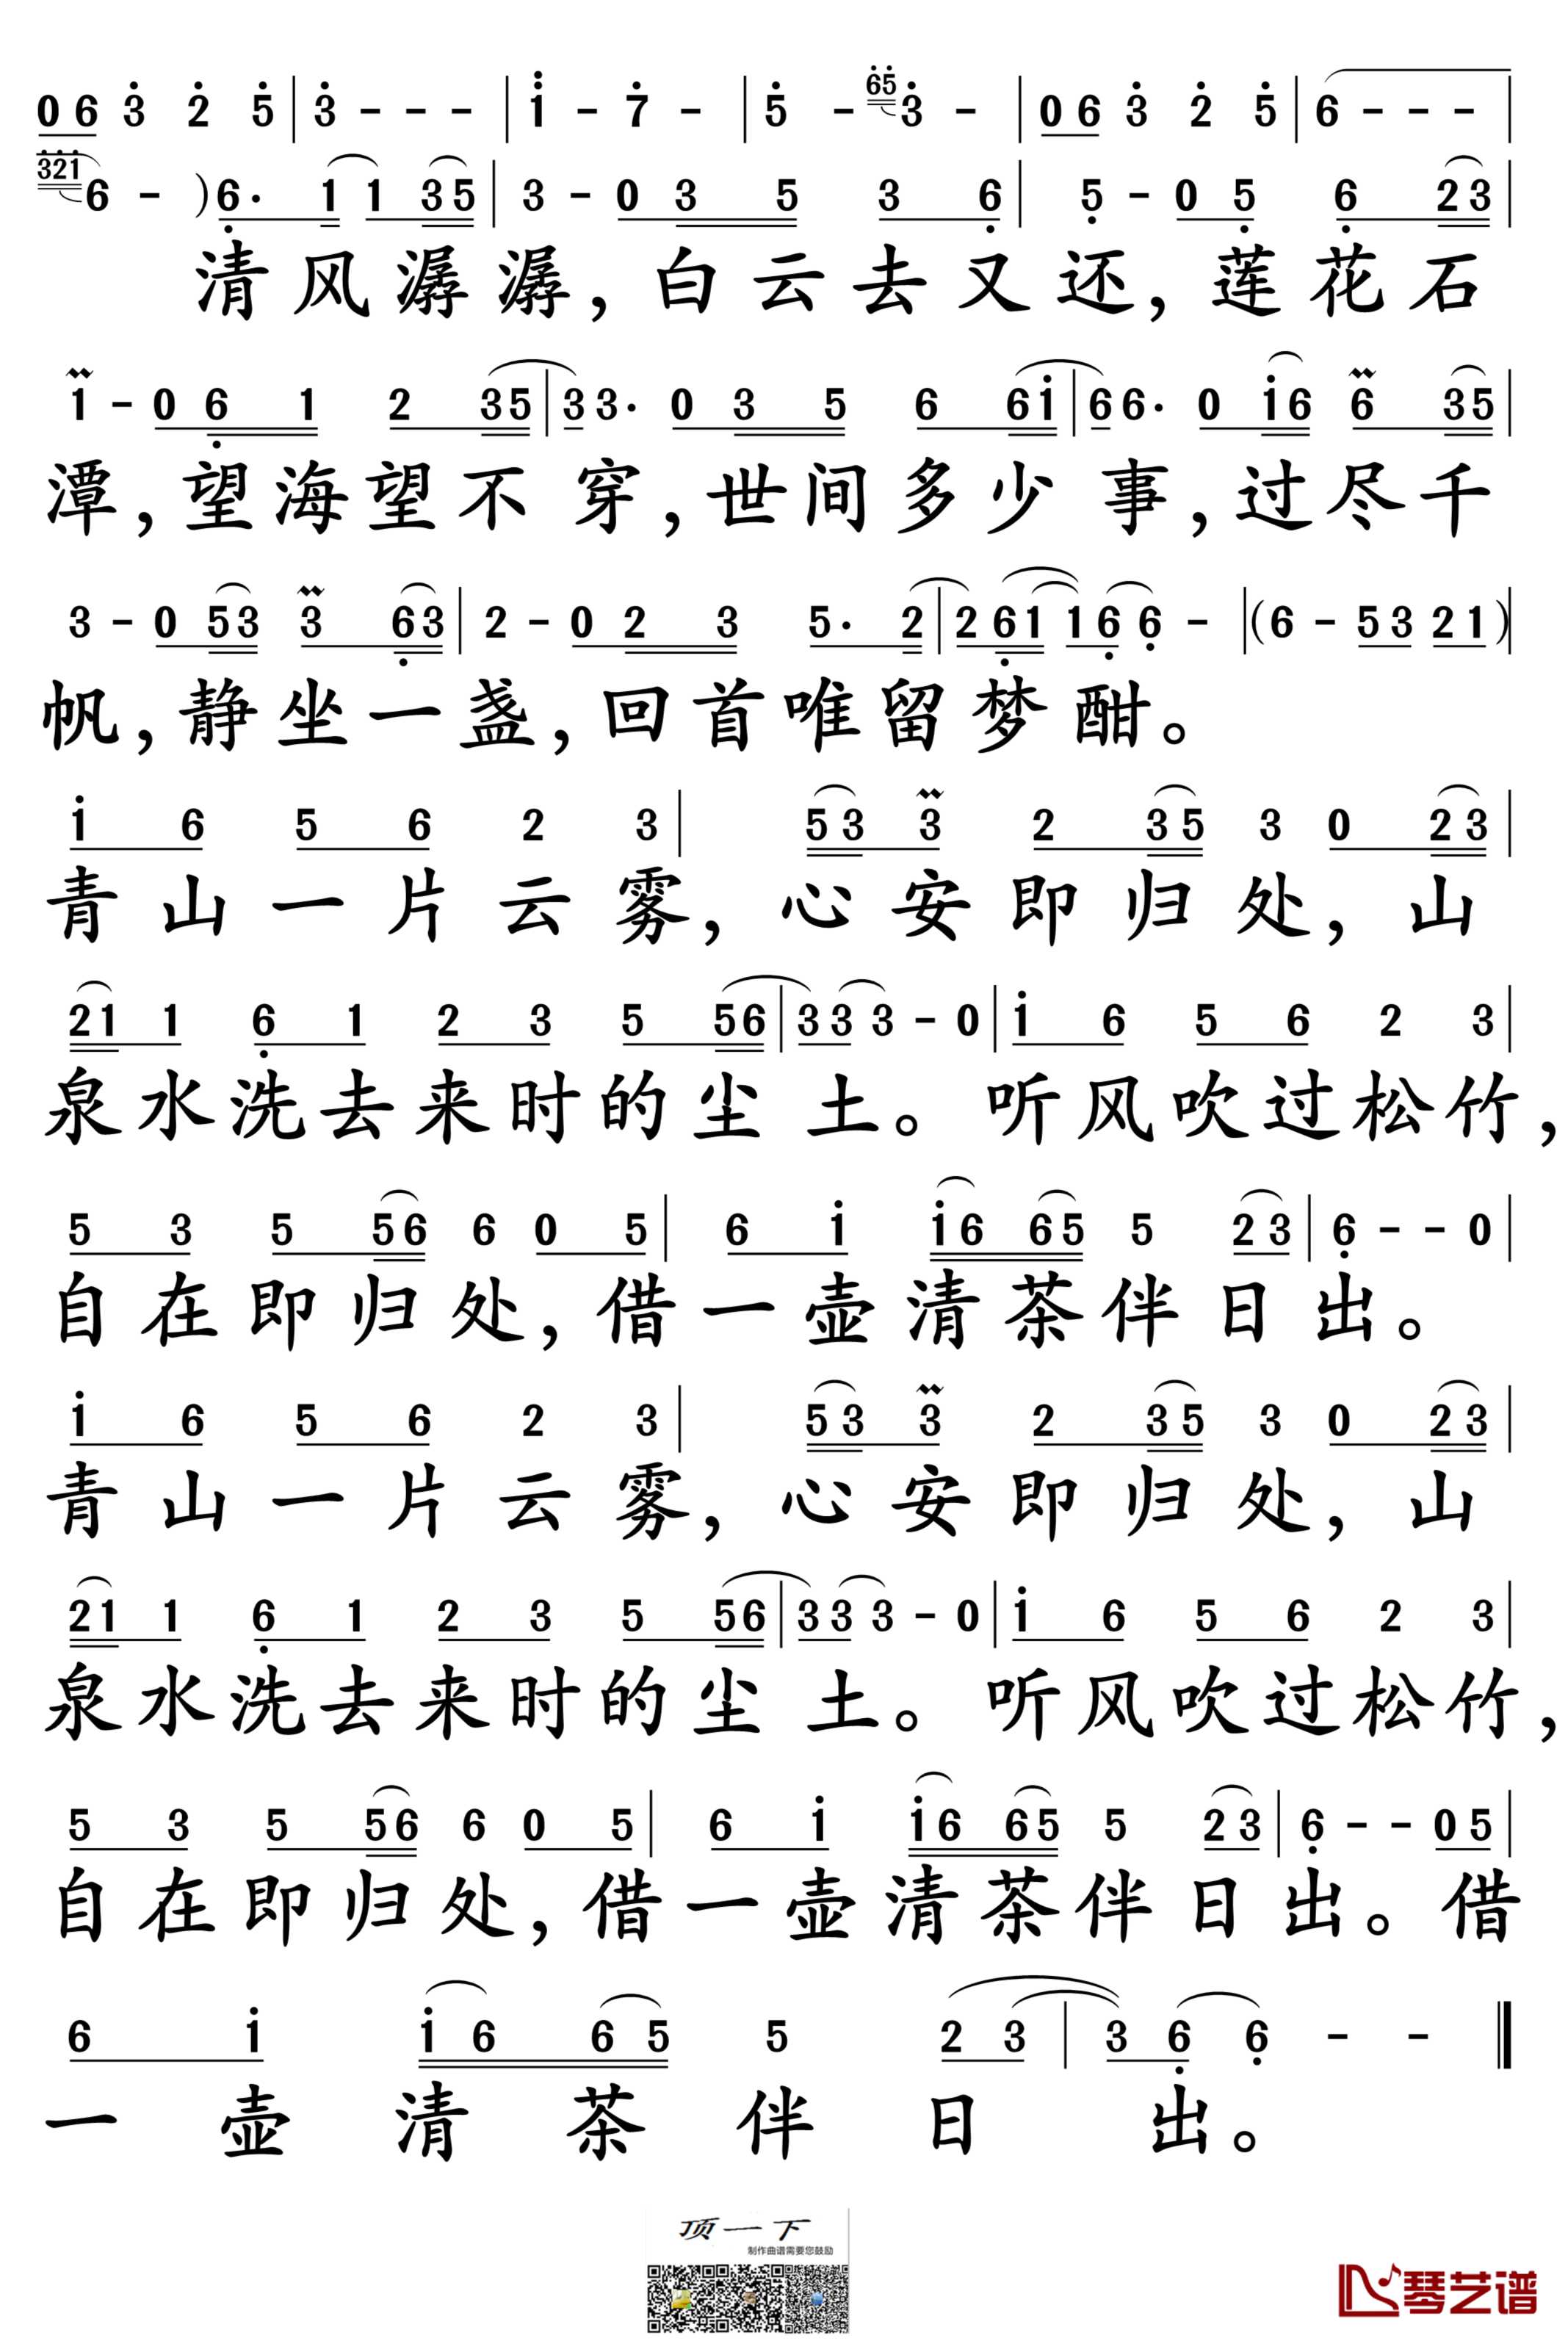 0 6 3̇ 2̇ 5̇ | 3̇ - - - | 1̈ - 7̇ - | 5̇ - 6̇5̇ 3̇ - | 0 6 3̇ 2̇ 5̇ | 6 - - - |
3̇2̇1̇ 6 - ) 6̣· 1 1 3 5 | 3 - 0 3 5 3 6̣ | 5̣ - 0 5̣ 6̣ 2 3 |
清风潺潺,白云去又还,莲花石
1 - 0 6̣ 1 2 3 5 | 3 3· 0 3 5 6 6 1̇ | 6 6· 0 1̇ 6 6 3 5 |
潭,望海望不穿,世间多少事,过尽千
3 - 0 5 3 3 6̣ 3 | 2 - 0 2 3 5· 2 | 2 6̣ 1 1 6̣ 6̣ - | ( 6 - 5 3 2 1 ) |
帆,静坐一盏,回首唯留梦酣。
1̇ 6 5 6 2 3 | 5 3 3 2 3 5 3 0 2 3 |
青山一片云雾,心安即归处,山
2 1 1 6̣ 1 2 3 5 5 6 | 3 3 3 - 0 | 1̇ 6 5 6 2 3 |
泉水洗去来时的尘土。听风吹过松竹,
5 3 5 5 6 6 0 5 | 6 1̇ 1̇ 6 6 5 5 2 3 | 6̣ - - 0 |
自在即归处,借一壶清茶伴日出。
1̇ 6 5 6 2 3 | 5 3 3 2 3 5 3 0 2 3 |
青山一片云雾,心安即归处,山
2 1 1 6̣ 1 2 3 5 5 6 | 3 3 3 - 0 | 1̇ 6 5 6 2 3 |
泉水洗去来时的尘土。听风吹过松竹,
5 3 5 5 6 6 0 5 | 6 1̇ 1̇ 6 6 5 5 2 3 | 6̣ - - 0 5 |
自在即归处,借一壶清茶伴日出。借
6 1̇ 1̇ 6 6 5 5 2 3 | 3 6̣ 6̣ - - ‖
一壶清茶伴日出。
顶一下
制作曲谱需要您鼓励
琴艺谱